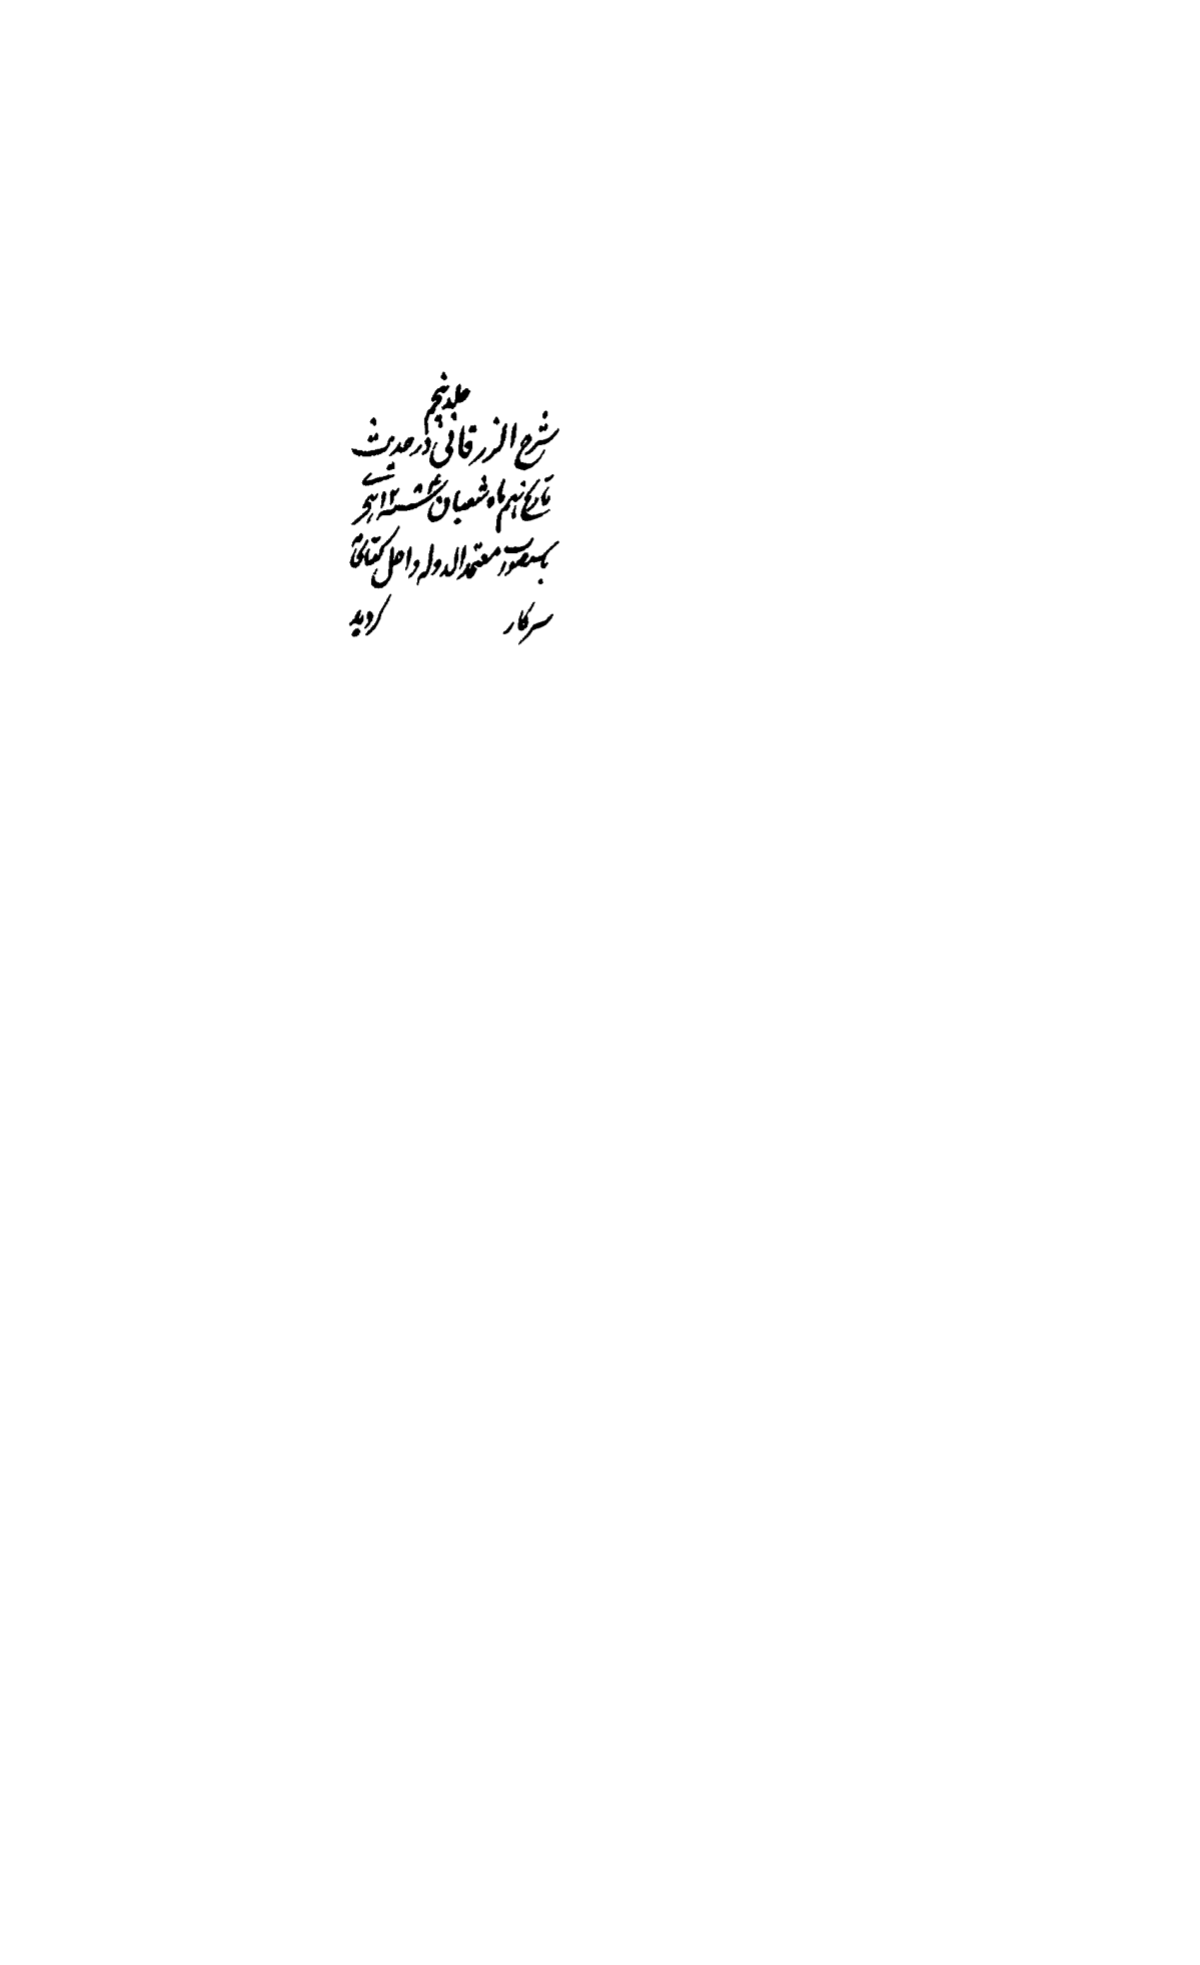 جلد پنجم
شرح الزرقانی در حدیث
تاریخ نهم ماه شعبان هجری
معتمد الدوله داخل کتابخانه
سرکار گردید